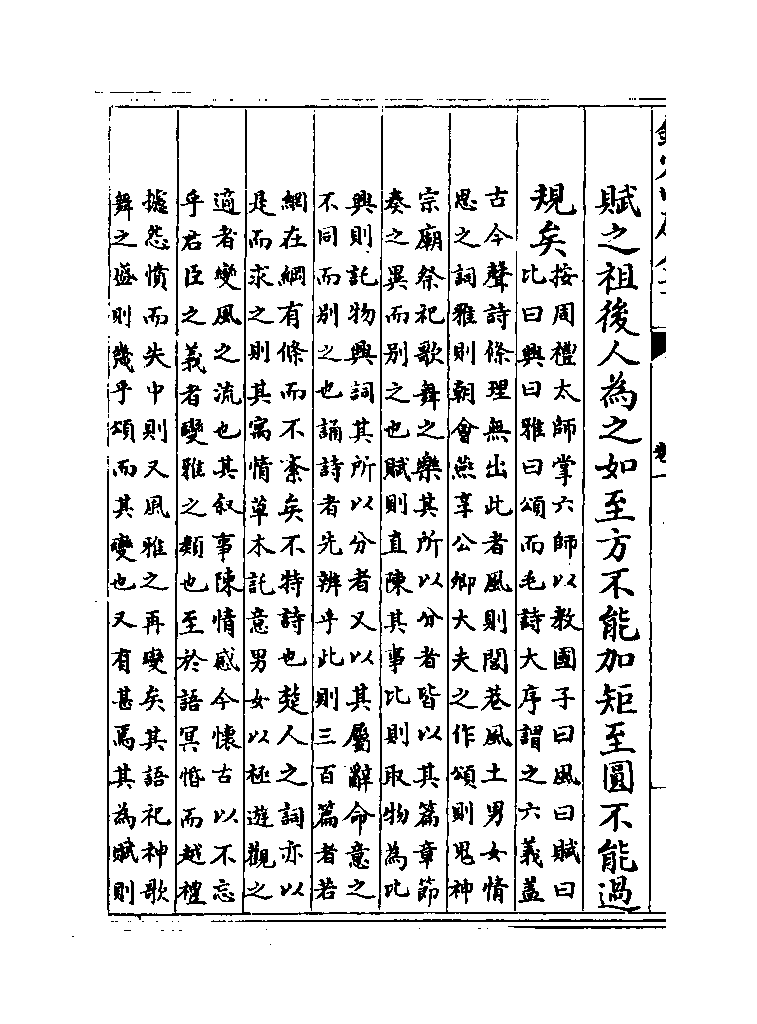 賦之祖後人為之如至方不能加矩至圓不能過
規矣
按周禮太師掌六師以教國子曰風曰賦曰
比曰興曰雅曰頌而毛詩大序謂之六義蓋
古今聲詩條理無出此者風則閭巷風土男女情
思之詞雅則朝會燕享公卿大夫之作頌則鬼神
宗廟祭祀歌舞之樂其所以分者皆以其篇章節
奏之異而別之也賦則直陳其事比則取物為比
興則託物興詞其所以分者又以其屬辭命意之
不同而別之也誦詩者先辨乎此則三百篇者若
網在綱有條而不紊矣不特詩也楚人之詞亦以
是而求之則其寓情草木託意男女以極遊觀之
適者變風之流也其叙事陳情感今懷古以不忘
乎君臣之義者變雅之類也至於語冥婚而越禮
攄怨憤而失中則又風雅之再變矣其語祀神歌
舞之盛則幾乎頌而其變也又有甚焉其為賦則